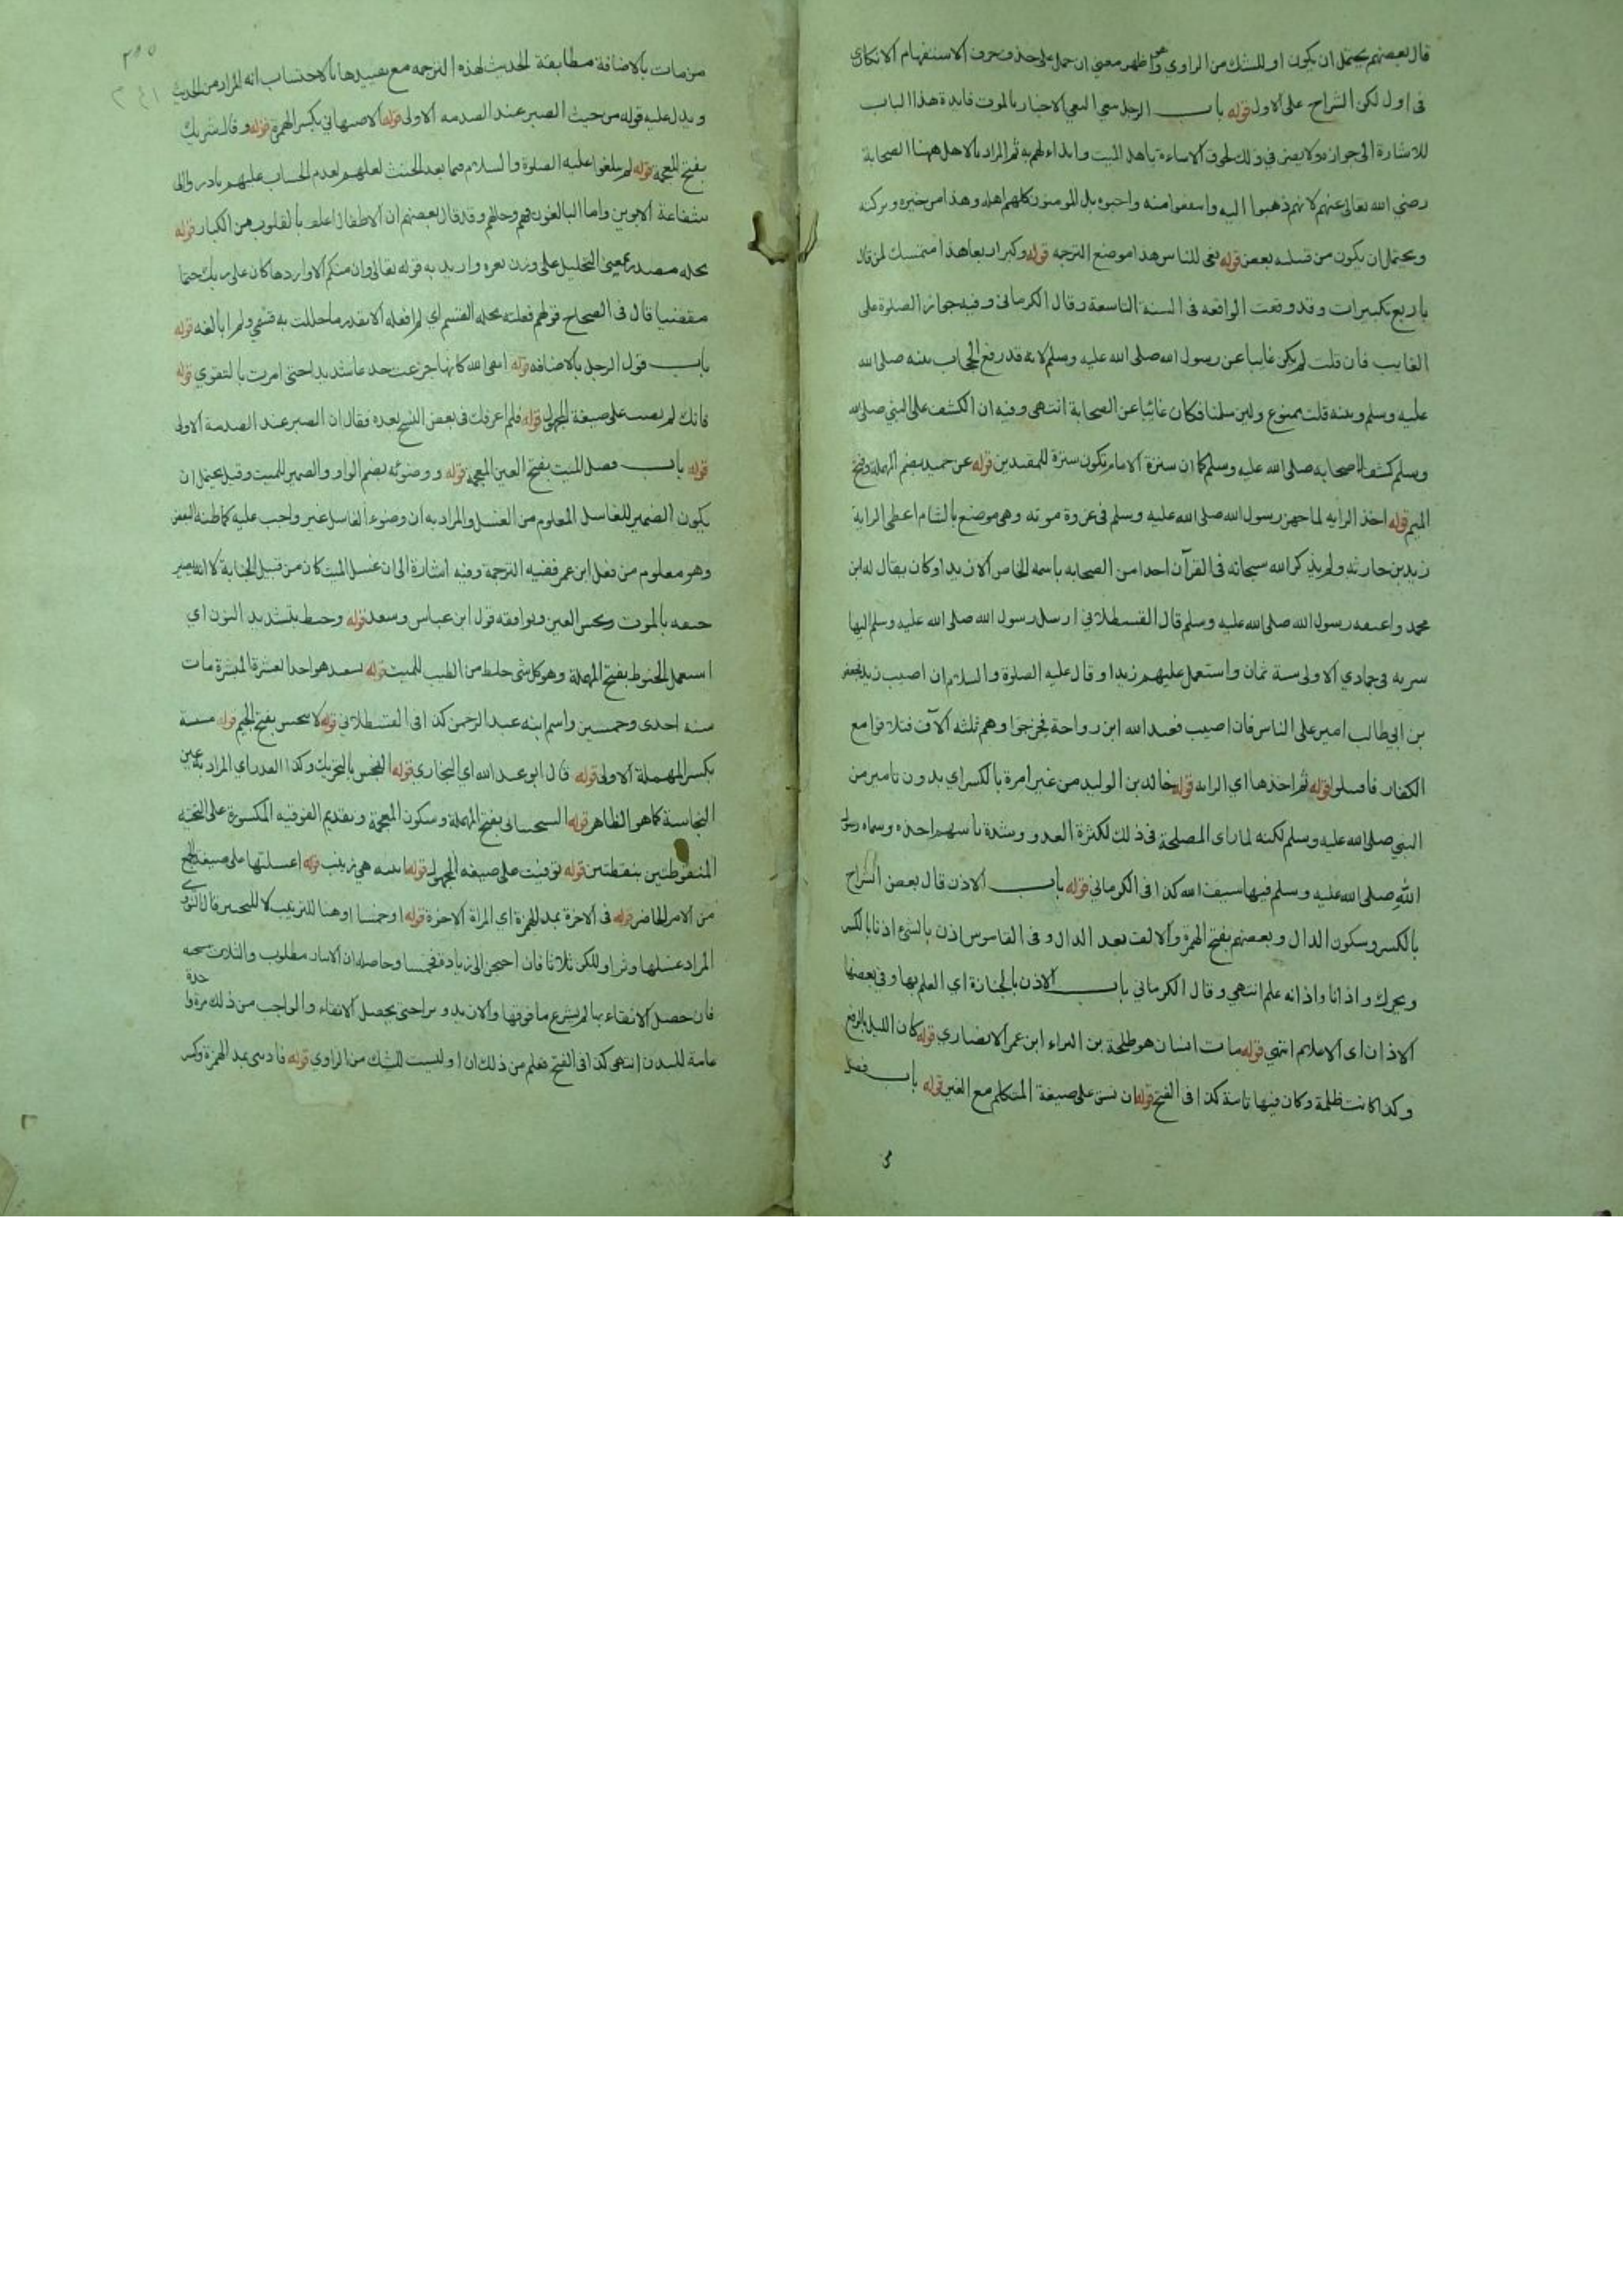 قال بعضهم يحتمل ان يكون او للشك من الراوي واظهر معنى ان حمل على حذف حرف الاستفهام الانكاري
في اول لكن الشراح على الاول قوله باب الرجل ينعي النعي الاخبار بالموت فايدة هذا الباب
للاشارة الى جوازه ولا يضر في ذلك لحوق الاساءة باهل الميت وايذاء لهم به ثم المراد بالاهل ههنا الصحابة
رضي الله تعالى عنهم لانهم ذهبوا اليه واحبوه بل المومنون كلهم اهله وهذا من خيره وبركته
ويحتمل ان يكون من قبيله بعض قوله نعى للناس هذا موضع الترجمه قوله وكبر اربعا هذا متمسك لمن قال
باربع تكبيرات وقد وقعت الواقعه في السنة التاسعة وقال الكرماني وفيه جواز الصلوة على
الغايب فان قلت لم يكن غايبا عن رسول الله صلى الله عليه وسلم لانه قد رفع الحجاب بينه صلى الله
عليه وسلم وبينه قلت ممنوع ولين سلمنا فكان غائبا عن الصحابة انتهى وفيه ان الكشف على النبي صلى الله
وسلم كشف لاصحابه صلى الله عليه وسلم كما ان سترة الامام تكون سترة للمقتدين قوله عن حميد بضم المهملة وفتح
الميم قوله اخذ الرايه لما جهز رسول الله صلى الله عليه وسلم في غزوة موته وهي موضع بالشام اعطى الراية
زيد بن حارثه ولم يذكر الله سبحانه في القرآن احدا من الصحابه باسمه الخاص الا زيدا وكان يقال له ابن
محمد واعتقه رسول الله صلى الله عليه وسلم قال القسطلاني ارسل رسول الله صلى الله عليه وسلم اليها
سريه في جمادي الاولى سنة ثمان واستعمل عليهم زيدا وقال عليه الصلوة والسلام ان اصيب زيد فجعفر
بن ابي طالب امير على الناس فان اصيب فعبد الله ابن رواحة فخرجوا وهم ثلثه آلاف فتلاقوا مع
الكفار فاقتتلوا قوله ثم اخذها اي الرايه قوله خالد بن الوليد من غير امرة بالكسر اي بدون تامير من
النبي صلى الله عليه وسلم لكنه لما راى المصلحة في ذلك لكثرة العدو وشدة باسهم اخذه وسماه رسول
الله صلى الله عليه وسلم فيها سيف الله كذا في الكرماني قوله باب الاذن قال بعض الشراح
بالكسر وسكون الذال وبعضهم بفتح الهمزة والالف بعد الذال وفي القاموس اذن بالشئ اذنا بالكسر
ويحرك واذانا واذانه علم انتهي وقال الكرماني باب الاذن بالجنازة اي العلم بها وفي بعضها
الاذان اى الاعلام انتهي قوله مات انسان هو طلحة بن البراء ابن عمر الانصاري قوله كان الليل بالرفع
وكذا كانت ظلمة وكان فيها تامة كذا في الفتح قوله ان نشق على صيغة المتكلم مع الغير قوله باب فضل
من مات بالاضافة مطابقة الحديث لهذه الترجمه مع تقييدها بالاحتساب انه المراد من الحديث
ويدل عليه قوله من حيث الصبر عند الصدمه الاولى قوله الاصبهاني بكسر الهمزة قوله وقال شريك
بفتح المعجمه قوله لم يبلغوا عليه الصلوة والسلام فما بعد الحنث لعلهم لعدم الحساب عليهم بادر والى
شفاعة الابوين واما البالغون فهم وحالهم وقد قال بعضهم ان الاطفال اعلق بالقلوب من الكبار قوله
تحله مصدر بمعنى التحليل على وزن واريد به قوله تعالى وان منكم الا واردها كان على ربك حتما
مقضيا قال في الصحاح قولهم فعلته تحله القسم اي لم افعله الا بقدر ما حللت به قسمي ولم ابالغه قوله
باب قول الرجل بالاضافه قوله اتقى الله كانها جزعت جدا شديدا حتى امرت بالتقوي قوله
فانك لم تصب على صيغة المجهول قوله فلم اعرفك في بعض النسخ بعده فقال ان الصبر عند الصدمة الاولى
قوله باب غسل الميت بفتح الغين المعجمه قوله ووضوئه بضم الواو والضمير للميت وقيل يحتمل ان
يكون الضمير للغاسل المعلوم من الغسل والمراد به ان وضوء الغاسل غير واجب عليه كما ظنه البعض
وهو معلوم من فعل ابن عمر ففيه الترجمة وفيه اشارة الى ان غسل الميت كان من قبيل الجنابة لا انه يصير
جيفه بالموت وكنجس العين ويوافقه قول ابن عباس وسعد قوله وحنط بتشديد النون اي
استعمل الحنوط بفتح المهملة وهو كل شئ خلط من الطيب للميت قوله سعد هو احد العشرة المبشرة مات
سنه احدى وخمسين واسم ابنه عبد الرحمن كذا في القسطلاني قوله لا ينجس بفتح الجيم قوله مسسته
بكسر المهملة الاولى قوله قال ابو عبد الله اي البخاري قوله النجس بالتحريك وكذا القدر اي المراد به عين
النجاسة كما هو الظاهر قوله السختياني بفتح المهملة وسكون المعجمة وبتقديم الفوقيه المكسورة على التحتيه
المنقوطتين بنقطتين قوله توفيت على صيغه المجهول قوله ابنته هي زينب قوله اغسلنها على صيغة الجمع
من الامر الحاضر قوله في الاخرة بمد الهمزة اي المراة الاخرة قوله او خمسا او هنا للترتيب لا للتخيير قال النووي
المراد غسلها وترا وليكن ثلاثا فان احتجن الى زيادة فخمسا وحاصله ان الايتار مطلوب والثلاث مستحبه
فان حصل الانقاء بها لم يشرع ما فوقها والا زيد وترا حتى يحصل الانقاء والواجب من ذلك مرة واحدة
عامة للبدن انتهى كذا في الفتح فعلم من ذلك ان او ليست للشك من الراوي قوله فاذنني بمد الهمزة وكسر